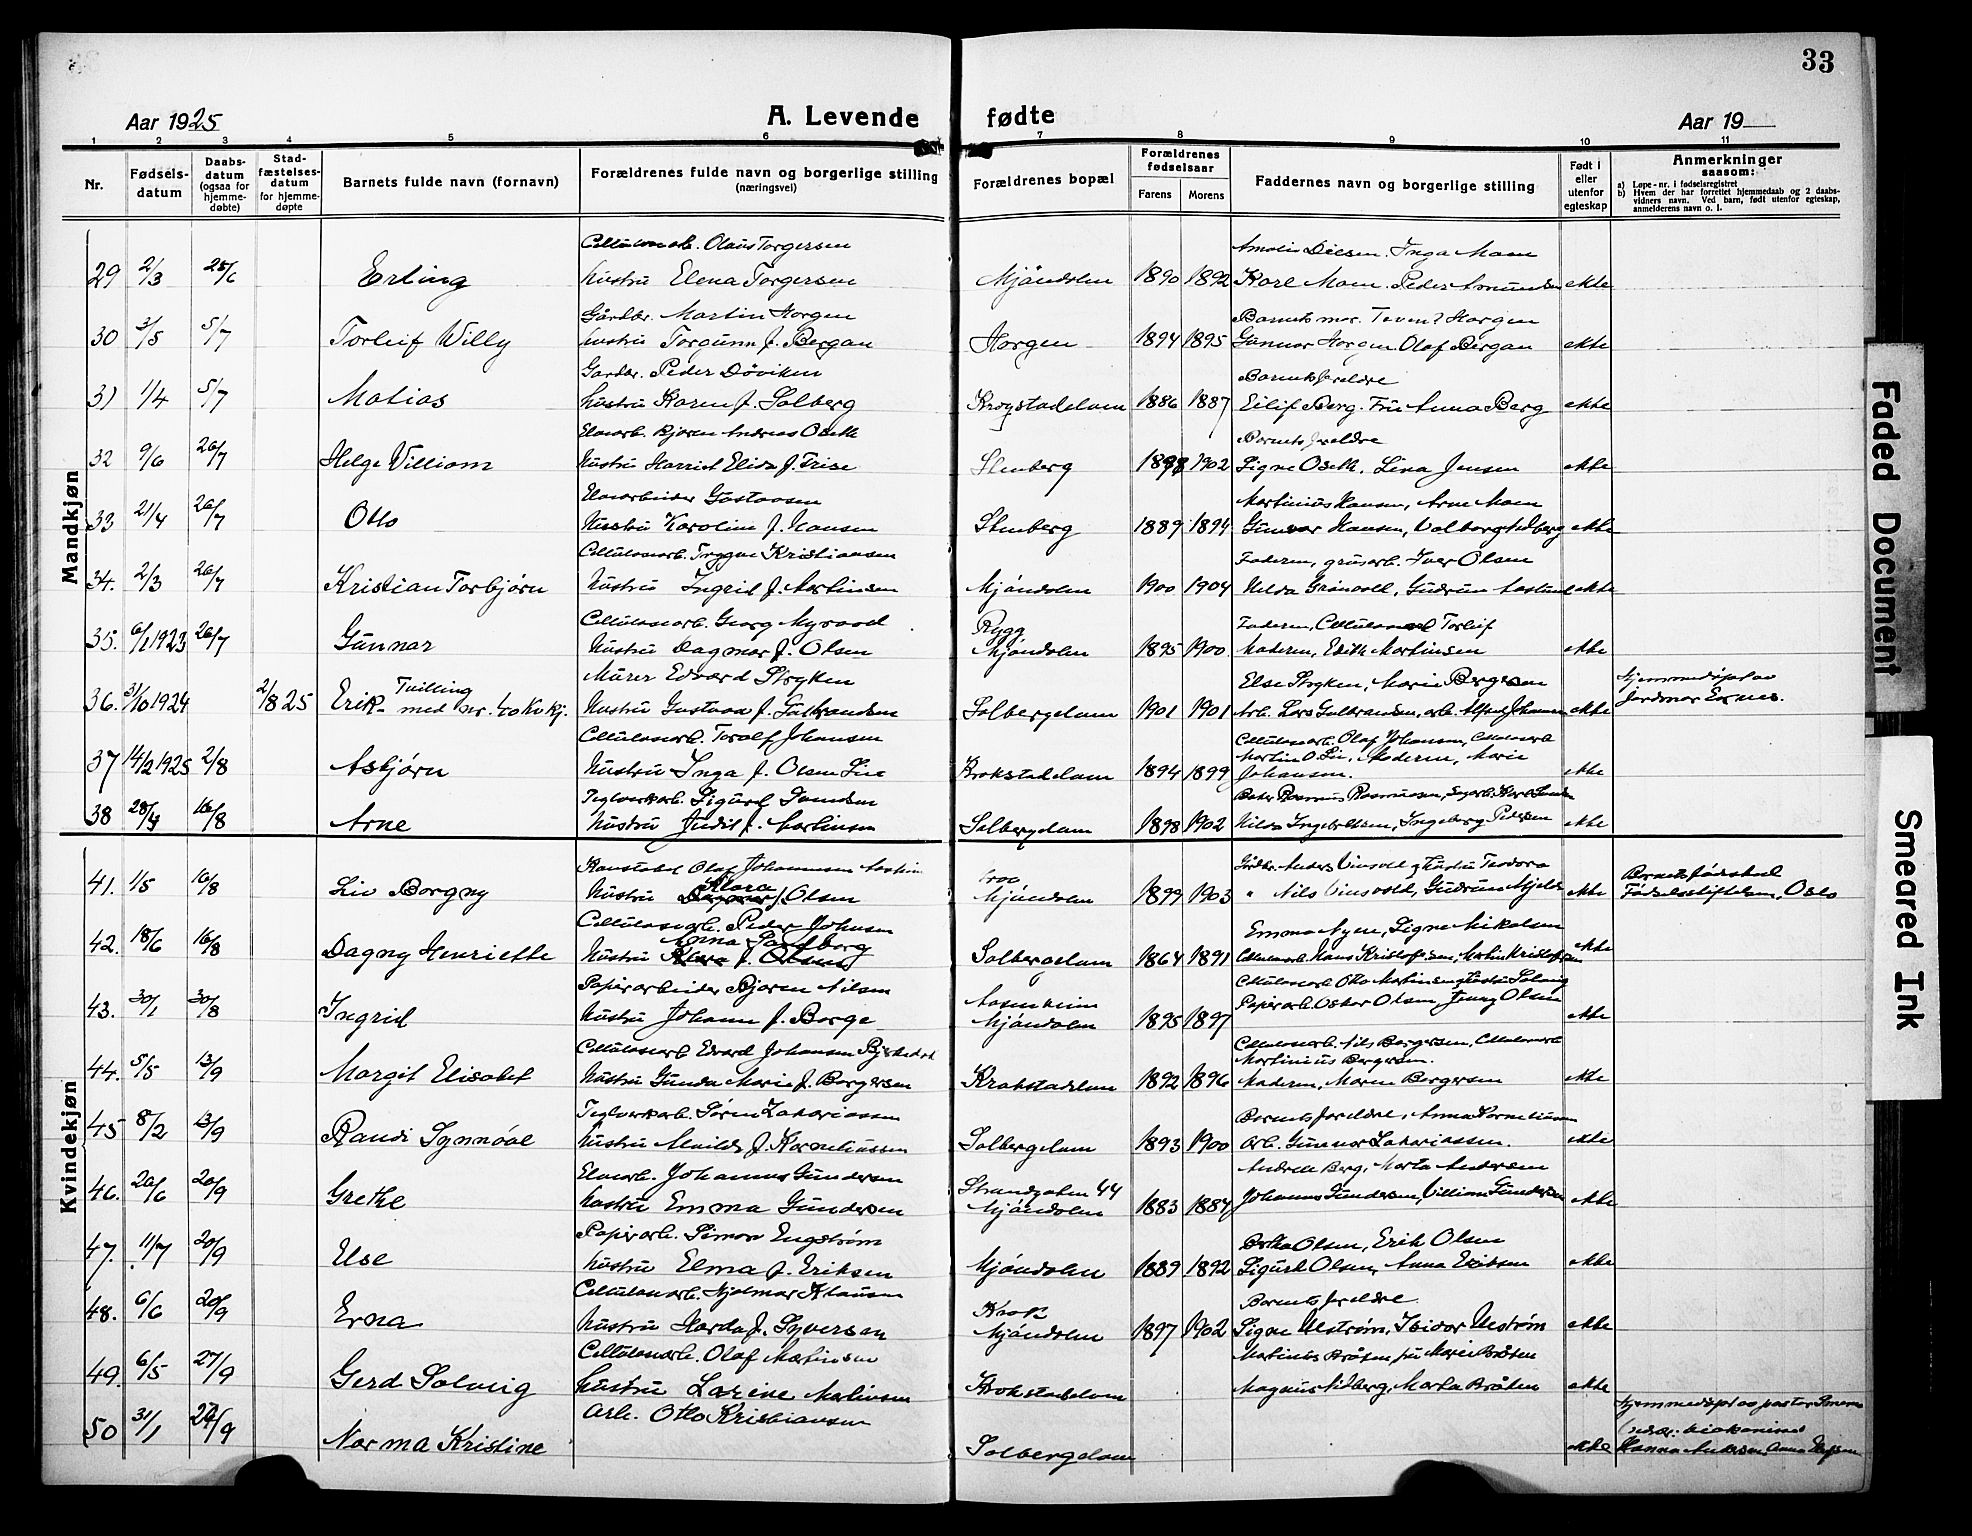 33
Aar 1925
A. Levende fødte
Aar 19
1 2 3 4 5 6 7 8 9 10 11
Nr.
Fødsels-datum
Daabs-datum (ogsaa for hjemme-døbte)
Stad-fæstelses-datum for hjemme-døpte
Barnets fulde navn (fornavn)
Forældrenes fulde navn og borgerlige stilling (næringsvei)
Forældrenes bopæl
Forældrenes fødselsaar
Farens Morens
Faddernes navn og borgerlige stilling
Født i eller utenfor egteskap
Anmerkninger saasom:
a) Løpe-nr. i fødselsregistret
b) Hvem der har forrettet hjemmedaab og 2 daabs-vidners navn. Ved barn, født utenfor egteskap, anmelderens navn o. l.
Mandkjøn
Olaus Torgersen Inga Moen
29 2/3 Erling hustru Elena Torgersen Mjøndalen 1890 1892 Karl Moen. Peder ekte
Gårdbr. Martin Horgen Barnets mor. Horgen
30 3/5 5/7 Torleif Willy hustru Torgunn f. Bergan Horgen 1894 1895 Gunnar Horgen Olaf Bergan ekte
Gardbr. Peder Døviken Barnets foreldre
31 1/4 5/7 Matias hustru Karen f. Solberg Krogstadelven 1886 1887 Eilif Berg. Fru Anna Berg ekte
Bjarne Andreas Oseth Barnets foreldre
32 9/6 26/7 Helge Villiam hustru Harriet Elida f. Frise Stenberg 1902 Signe Oseth, Lina Jensen ekte
Elvearbeider Gustavsen Martinius Hansen, Arne Moen
33 21/4 26/7 Otto hustru Karoline f. Hansen Stenberg 1889 1894 Gunvor Hansen, Valborg ekte
Cellulosearb. Trygve Kristiansen Faderen, Iver Olsen
34. 2/3 26/7 Kristian Torbjørn hustru Ingrid f. Martinsen Mjøndalen 1900 1904 Hilda Grønvoll, Gudrun ekte
Cellulosearb. Georg Myrvold Rygg Faderen, Torleif
35. 1923 26/7 Gunnar hustru Dagmar f. Olsen Mjøndalen 1895 1900 Moderen, Edith Martinsen ekte
Tvilling Murer Edvard Stryken Else Stryken, Marie Bergersen Hjemmedøpt av
36. 31/10 1924 2/8 25 Erik - med nr. 40 Kv kj. hustru Gustava f. Gulbrandsen Solbergelven 1901 1901 Arb. Lars Gulbrandsen, arb. Alfred Johansen ekte Jordmor
Cellulosearb. Torolf Johansen Cellulosearb. Olaf Johansen,
37 14/2 1925 2/8 Asbjørn hustru Inga f. Olsen Lie Krokstadelven 1894 1899 Martin O Lie, Moderen, Marie Johansen. ekte
Teglverkarb. Sigurd Rasmus Rasmussen,
38 16/8 Arne hustru Judit f. Martinsen Solbergelven 1898 1902 Hilda Ingebretsen, Ingeborg Pedersen ekte
Kvindekjøn
Olaf Johannesen Anders
41. 1/5 16/8 Liv Borgny hustru Klara f. Olsen Mjøndalen 1899 1903 " Nils Gudrun ekte Fødselsstiftelsen, Oslo
Cellulosearb. Peder Johnsen Emma Nyen, Signe Mikalsen
42. 18/6 16/8 Dagny Henriette hustru Anna Sandberg Solbergelven 1864 1891 Cellulosearb. Hans Kristoffersen, Martin Kristoffersen ekte
Papirarbeider Bjarne Nilsen Cellulosearb. Otto Martinsen, hustru Solveig
43. 30/1 30/8 Ingrid hustru Johanne f. Borge Aasenheim Mjøndalen 1895 1897 Papirarb. Oskar Olsen, Jenny Olsen ekte
Cellulosearb. Edvard Johansen Cellulosearb. Nils Bergersen, Cellulosearb. Martinius Bergersen.
44. 5/5 13/9 Margit Elisabet hustru Gunda Marie f. Bergersen Krokstadelven 1892 1896 Moderen, Maren Bergersen ekte
Teglverkarb. Søren Zakariassen Barnets foreldre, Anna Korneliussen
45 8/2 13/9 Randi Synnøve hustru Alvilde f. Korneliussen Solbergelven 1893 1900 Arb. Gunnar Zakariassen. ekte
Elvearb. Johannes Gundersen Strandgaten 44 Berg, Marta Andersen
46. 26/6 20/9 Grethe hustru Emma Gundersen Mjøndalen 1883 1884 Johannes Gundersen, Villiam Gundersen ekte
Papirarb. Simon Engstrøm Olsen, Erik Olsen
47. 11/7 20/9 Else hustru Elma f. Eriksen Mjøndalen 1889 1892 Sigurd Olsen, Anna Eriksen ekte
Cellulosearb. Hjalmar Klausen Krok Barnets foreldre.
48. 6/6 20/9 Erna hustru Harda f. Syversen Mjøndalen 1897 1902 Signe Ulstrøm, Isidor Ulstrøm ekte
Cellulosearb. Olaf Martinsen Martinius Bråten, fru Marie Bråten
49. 6/5 27/9 Gerd Solveig hustru Lovise Martinsen Krokstadelven Magnus Nidberg, Marta Bråten ekte
Arb. Otto Kristiansen Hjemmedøpt av pastor
50 31/1 Norma Kristine Solbergelven ekte Hanna Andersen, Anna
Faded Document
Smeared Ink